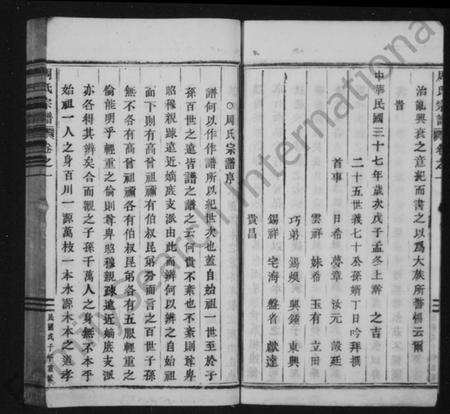 周氏宗譜 卷之一
治亂興衰之意紀而書之以爲大族所當輯云爾
貴
中華民國三十七年歲次戊子孟冬上澣 之吉
二十五世羲七十公孫 丁日吟拜撰
首事
日希 夢章 汝元 殿廷
雲祥 妹希 玉有 立田
巧弟 錫煥 興鍾 東興
錫祥 宅海 盤省 獻達
貴昌
○周氏宗譜序
譜何以作作譜所以紀世次也蓋自始祖一世至於子
孫百世之遠皆譜之譜之云何貴不紊也不紊則尊卑
昭穆親疎遠近嫡庶支派由此而辨何以辨之自始祖
而下則有高曾祖禰有伯叔昆弟分而言之百世子孫
無不各有高曾祖禰各有伯叔昆弟各有五服輕重之
倫能明乎輕重之倫則尊卑昭穆親疎遠近嫡庶支派
亦各得其辨矣合而觀之子孫千萬人之身無不本乎
始祖一人之身百川一源萬枝一本水源木本之道孝
周氏宗譜 卷之一
民國戊子
FamilySearch International